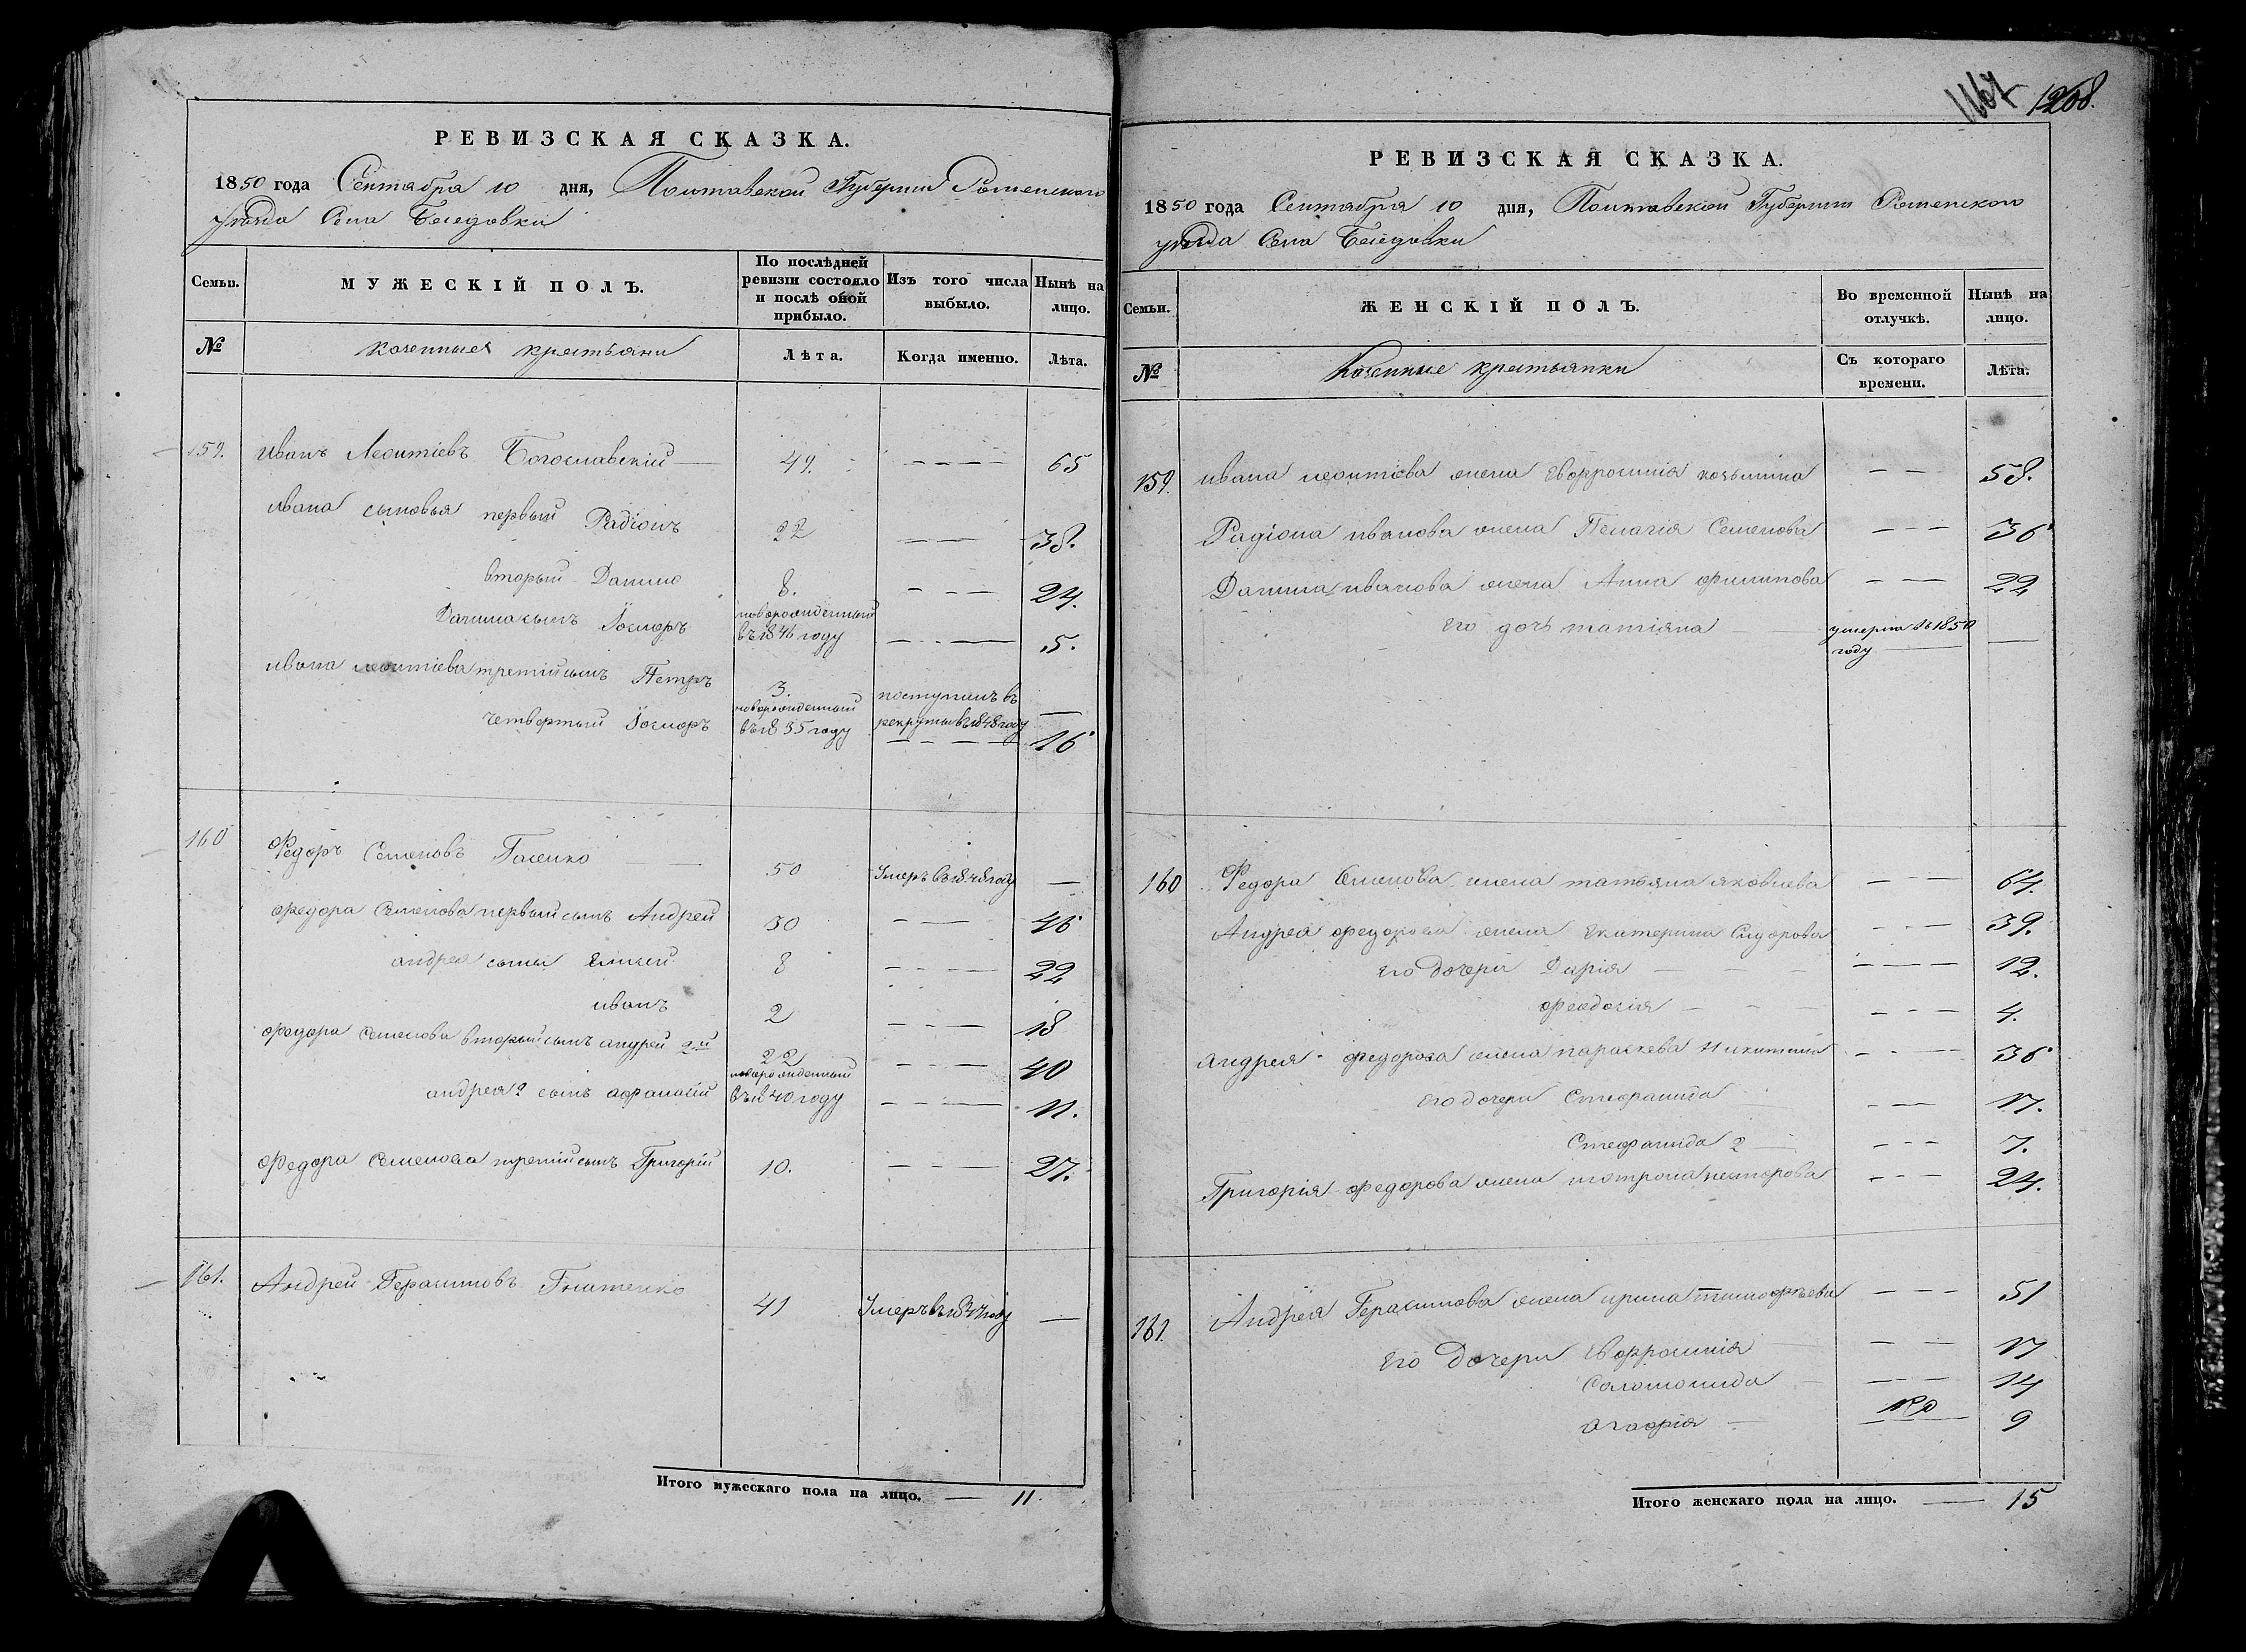 РЕВИЗСКАЯ СКАЗКА.
1850 года Сентября 10 дня, Полтавской Губернии Роменского
уезда Села Беседовки
Семьи. МУЖЕСКІЙ ПОЛЪ. По послѣдней ревизіи состояло и послѣ оной прибыло. Изъ того числа выбыло. Нынѣ на лицо.
№ казенные крестьяни Лѣта. Когда именно. Лѣта.
159. Иванъ Леонтіевъ Богославскій 49. 65
ивана сыновья первый Радіонъ 22 38.
вторый Данило 8. 24.
Данила сынъ Їосифъ новорожденный въ 1846 году 5.
ивана леонтіева третій сынъ Петръ 3. поступилъ въ рекруты въ 1848 году —
четвертый Їосифъ новорожденный въ 1835 году 16
160 Федоръ Семеновъ Гасенко 50 Умеръ въ 1848 году —
федора Семенова первый сынъ Андрей 30 46
андрея сыны Елисей 8 22
иванъ 2 18
федора Семенова вторый сынъ андрей 2й 22 40
андрея 2 сынъ афанасій новорожденный въ 1840 году 11.
Федора Семенова третій сынъ Григорій 10. 27.
161. Андрей Герасимовъ Гнатенко 41 Умеръ въ году —
Итого мужескаго пола на лицо. — 11.
1167 1208.
РЕВИЗСКАЯ СКАЗКА.
1850 года Сентября 10 дня, Полтавской Губернии Роменского
уезда Села Беседовки
Семьи. ЖЕНСКІЙ ПОЛЪ. Во временной отлучкѣ. Нынѣ на лицо.
№ Казенные крестьянки Съ котораго времени. Лѣта.
159. ивана леонтіева жена Евфросинія козьмина 58.
Радіона иванова жена Пелагія Семенова 36
Данила иванова жена Анна филипова 22
его дочь татіяна умерла въ 1850 году —
160 Федора Семенова жена татьяна яковлева 64.
Андрея федорова жена Екатерина Сидорова 39.
его дочери Дарія 12.
феодосія 4.
Андрея федорова жена параскева Никитина 36
его дочери Стефанида 17.
Стефанида 2 7.
Григорія федорова жена мотрона несторова 24.
161. Андрея Герасимова жена ирина тимофѣева 51
Его дочери Евфросинія 17
Соломонида 14
агафія 9
Итого женскаго пола на лицо. — 15